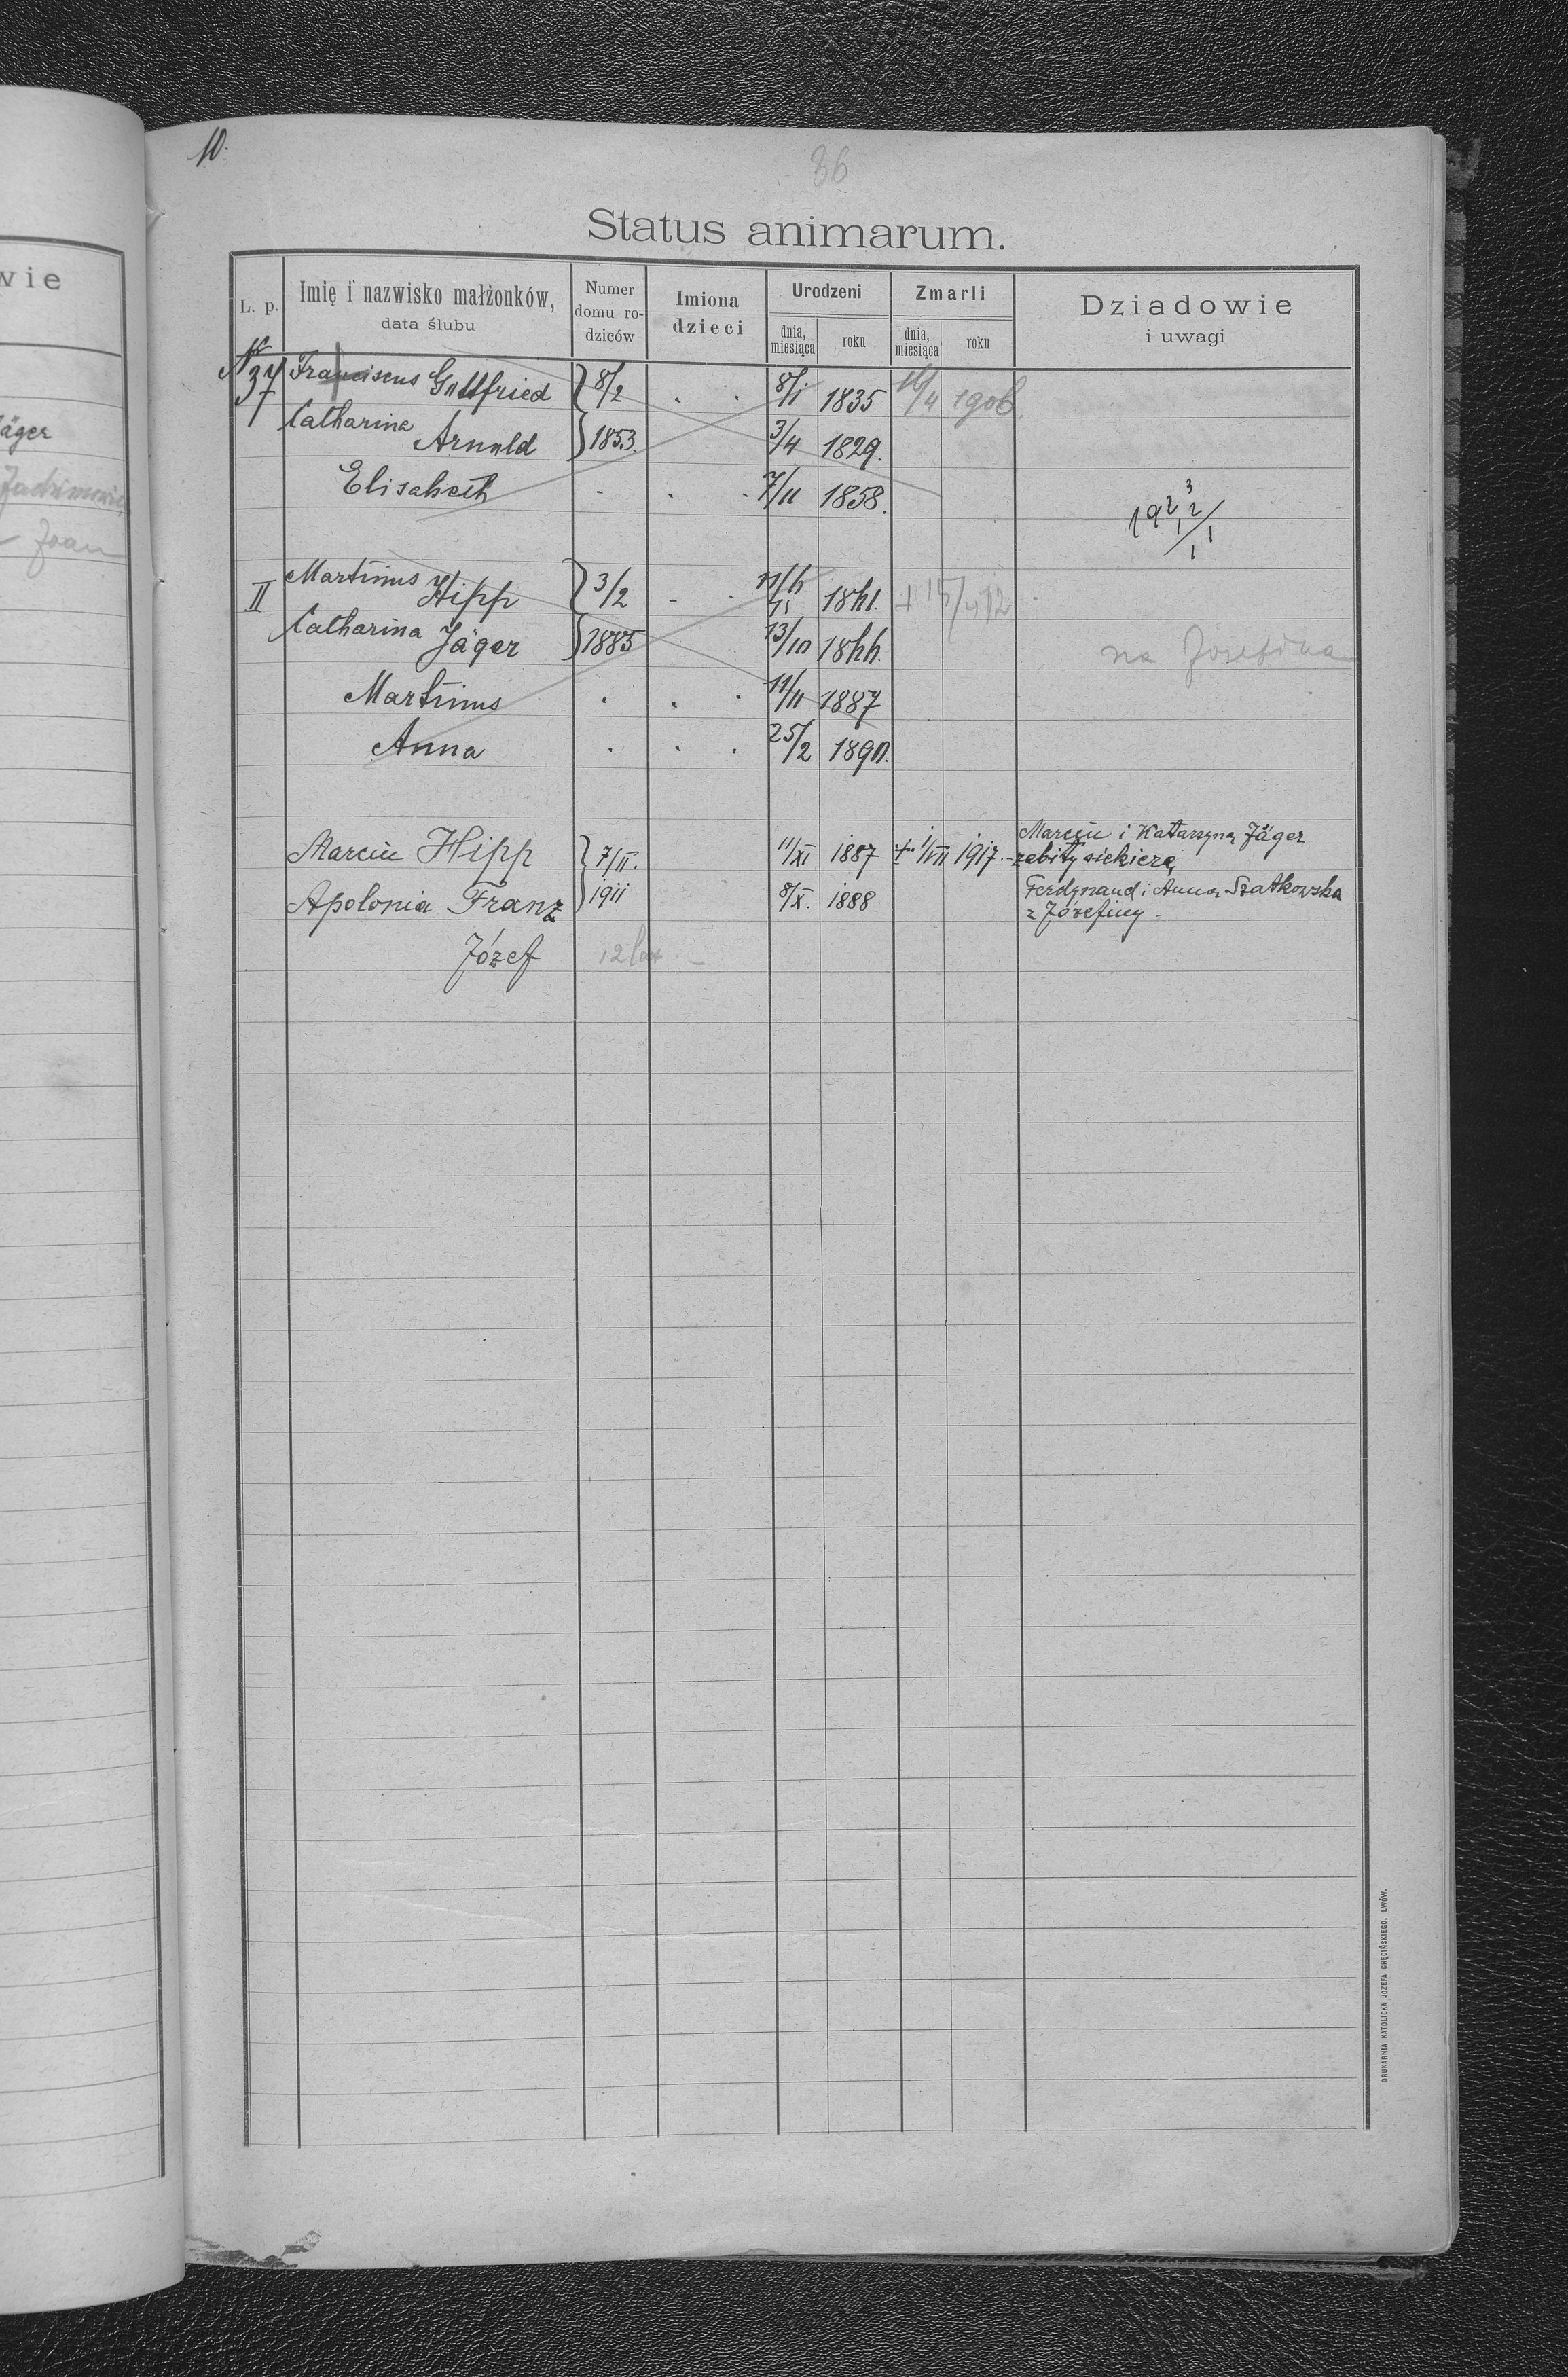 10.
36
Status animarum.
wie
L. p.
Imię i nazwisko małżonków,
data ślubu
Numer
domu ro-
dziców
Imiona
dzieci
Urodzeni
dnia,
miesiąca
roku
Zmarli
dnia,
miesiąca
roku
Dziadowie
i uwagi
Nr 37 Franciscus Gottfried } 8/2 . . 8/1 1835 16/4 1906
I Catharina Arnold } 1853. 3/4 1829.
Elisabeth . . . 7/11 1858.
II Martinus Hipp } 3/2 - . 11/11 1841. + 15/4 912
Catharina Jäger } 1885 13/10 1844.
na Josefina
Martinus . . . 11/11 1887
Anna . . . 25/2 1890.
Marcin Hipp } 7/II. 11/XI 1887 + 1/VII 1917. Marcin i Katarzyna Jäger
zabity siekierą
Apolonia Franz } 1911 8/X. 1888 Ferdynand i Anna Szatkowska
z Józefiny.
Józef 12 lat -
äger
Joan
DRUKARNIA KATOLICKA JOZEFA CHĘCIŃSKIEGO, LWÓW.